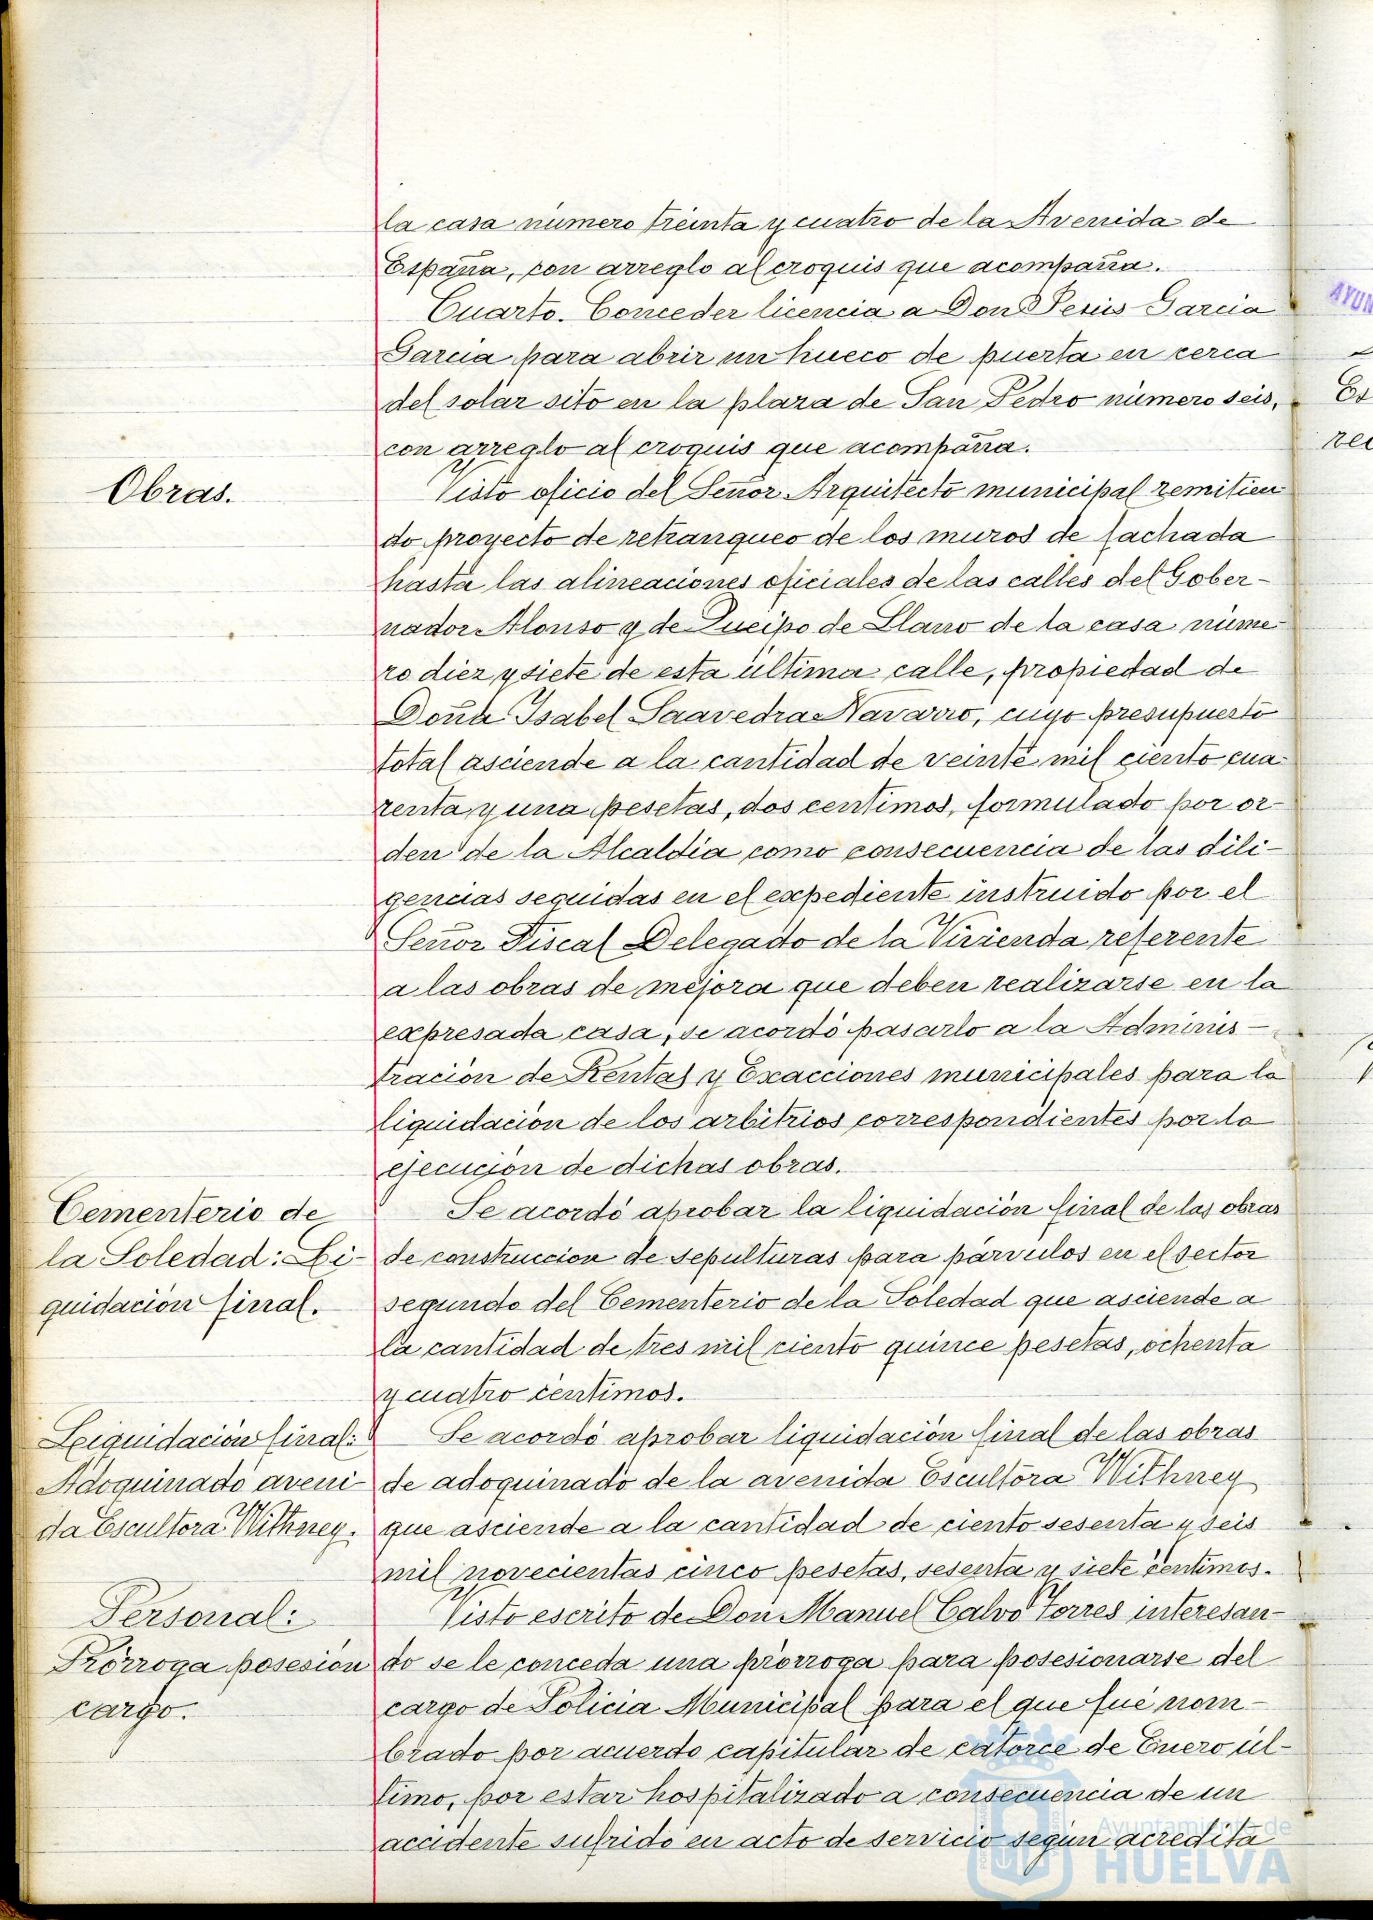 la casa número treinta y cuatro de la Avenida de
España, con arreglo al croquis que acompaña.
Cuarto. Conceder licencia a Don Jesús García
García para abrir un hueco de puerta en cerca
del solar sito en la plaza de San Pedro número seis,
con arreglo al croquis que acompaña.
Obras.
Visto oficio del Señor Arquitecto municipal remitien
do proyecto de retranqueo de los muros de fachada
hasta las alineaciones oficiales de las calles del Gober-
nador Alonso y de Queipo de Llano de la casa núme-
ro diez y siete de esta última calle, propiedad de
Doña Isabel Saavedra Navarro, cuyo presupuesto
total asciende a la cantidad de veinte mil ciento cua-
renta y una pesetas, dos centimos, formulado por or-
den de la Alcaldía como consecuencia de las dili-
gencias seguidas en el expediente instruido por el
Señor Fiscal Delegado de la Vivienda referente
a las obras de mejora que deben realizarse en la
expresada casa, se acordó pasarlo a la Adminis-
tración de Rentas y Exacciones municipales para la
liquidación de los arbitrios correspondientes por la
ejecución de dichas obras.
Cementerio de
la Soledad: Li-
quidación final.
Se acordó aprobar la liquidación final de las obras
de construccion de sepulturas para párvulos en el sector
segundo del Cementerio de la Soledad que asciende a
la cantidad de tres mil ciento quince pesetas, ochenta
y cuatro céntimos.
Liquidación final:
Adoquinado aveni-
da Escultora Withney.
Se acordó aprobar liquidación final de las obras
de adoquinado de la avenida Escultora Withney
que asciende a la cantidad de ciento sesenta y seis
mil novecientas cinco pesetas, sesenta y siete céntimos.
Personal:
Prórroga posesión
cargo.
Visto escrito de Don Manuel Calvo Torres interesan-
do se le conceda una prórroga para posesionarse del
cargo de Policia Municipal para el que fué nom-
brado por acuerdo capitular de catorce de Enero úl-
timo, por estar hospitalizado a consecuencia de un
accidente sufrido en acto de servicio según acredita
Ayuntamiento de
HUELVA
AYUN
Es